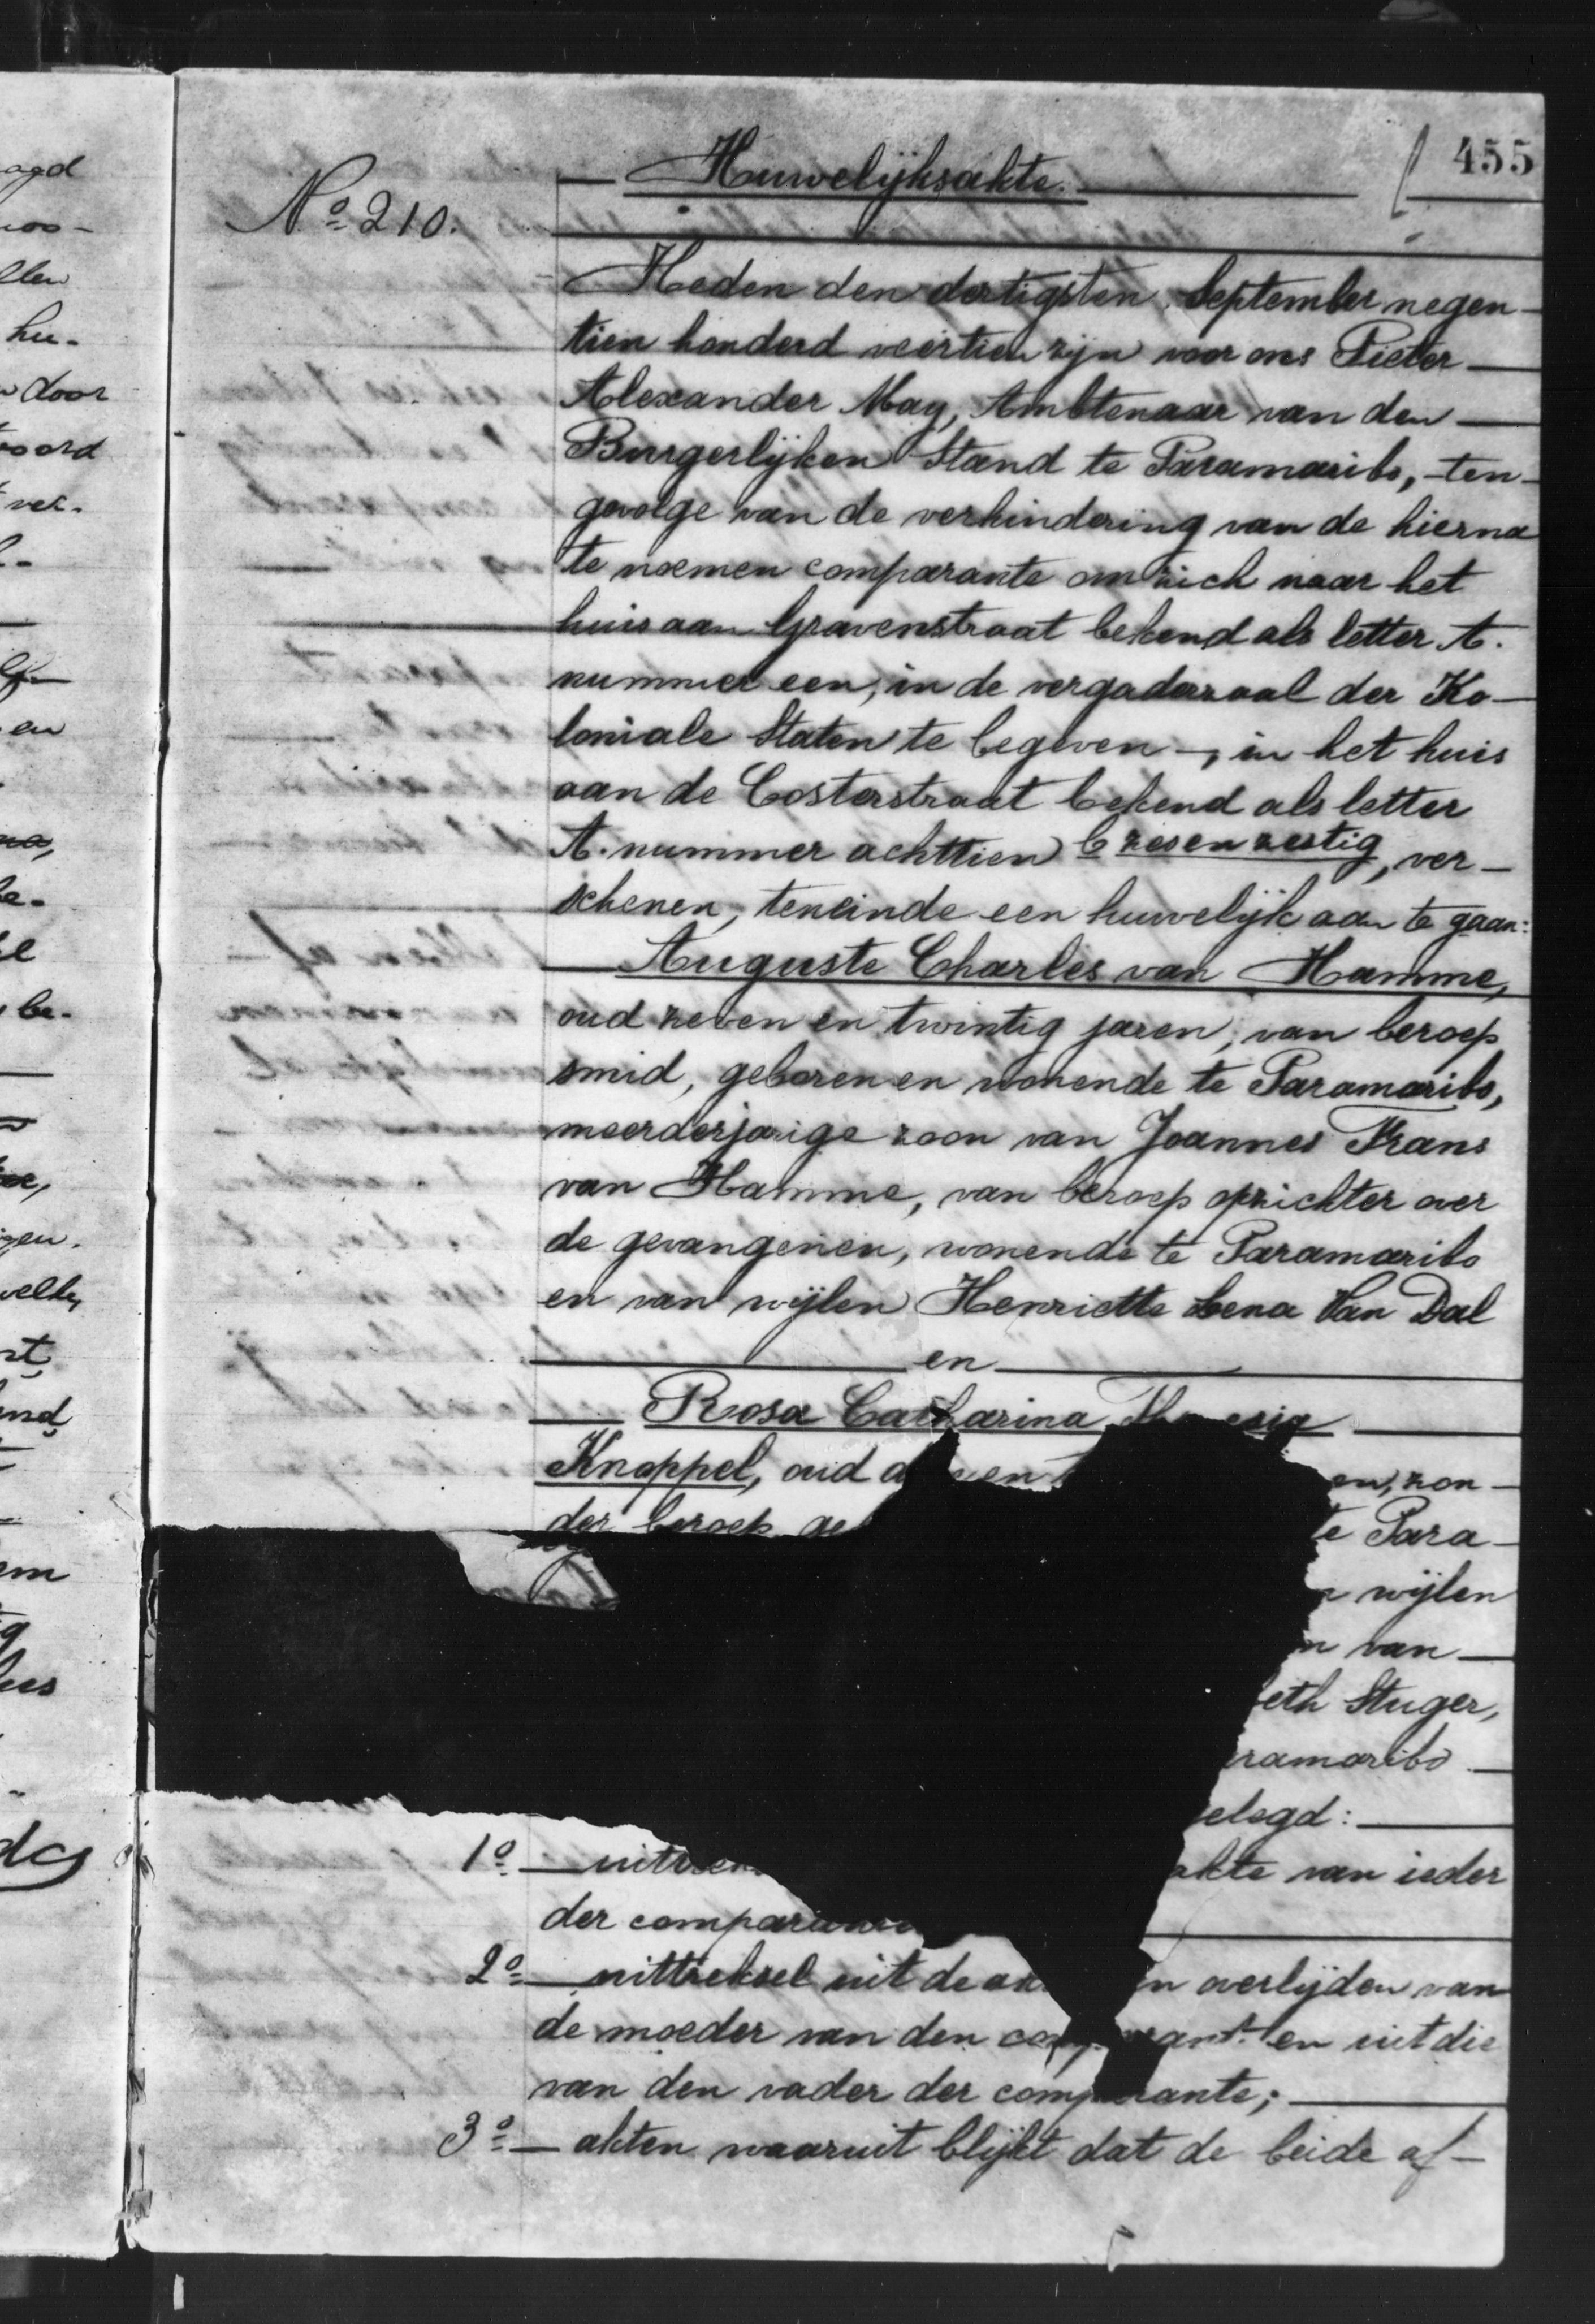 455
Huwelijksakte.
No 210.
Heden den dertigsten September negen-
tien honderd veertien zijn voor ons Pieter
Alexander May, Ambtenaar van den
Burgerlijken Stand te Paramaribo, -ten-
gevolge van de verhindering van de hierna
te noemen comparante om zich naar het
huis aan Gravenstraat bekend als letter A.
nummer een, in de vergaderzaal der Ko-
loniale Staten te begeven -, in het huis
aan de Costerstraat bekend als letter
A. nummer achttien b zes en zestig, ver-
schenen, teneinde een huwelijk aan te gaan:
Auguste Charles van Hamme,
oud zeven en twintig jaren, van beroep
smid, geboren en wonende te Paramaribo,
meerderjarige zoon van Joannes Frans
van Hamme, van beroep opzichter over
de gevangenen, wonende te Paramaribo
en van wijlen Henriette Lena Van Dal
en
Rosa Catharina
Knoppel, oud en en, zon-
der beroep, ge te Para-
wijlen
van
eth Stuger,
ramaribo
elegd:
1o uittrek akte van ieder
der comparanten
2o uittreksel uit de ak n overlijden van
de moeder van den comparant en uit die
van den vader der comparante;
3o akten waaruit blijkt dat de beide af-
agd
noo-
llen
hu-
door
oord
ver-
en
be-
gen.
welke
st
end
em